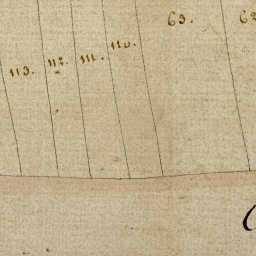 113. 112. 111. 110. 63.